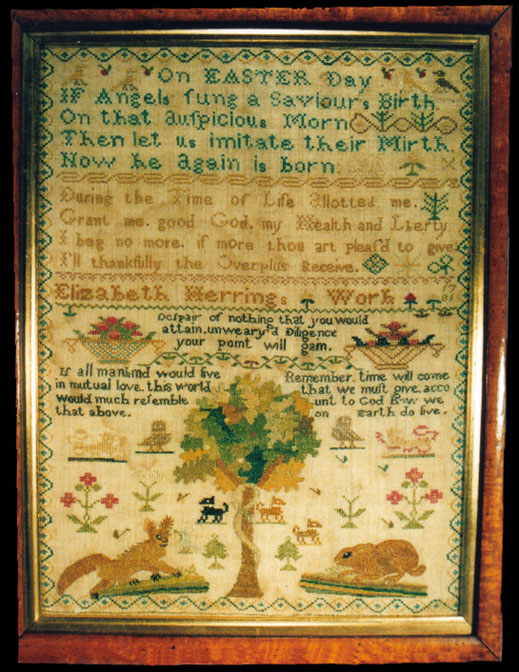 On EASTER Day
IF Angels sung a Saviour's Birth
On that Auspicious Morn
Then let us imitate their Mirth
Now he again is born
During the Time of Life Allotted me.
Grant me. good God. my Health and Liberty
I beg no more. if more thou art pleas'd to give
I'll thankfully the Overplus Receive.
Elizabeth Herring. Work
Despair of nothing that you would
attain. unweary'd Diligence
your point will gain.
If all mankind would live
in mutual love. this world
would much resemble
that above.
Remember. time will come
that we must give. acco
unt to God how we
on Earth do live.